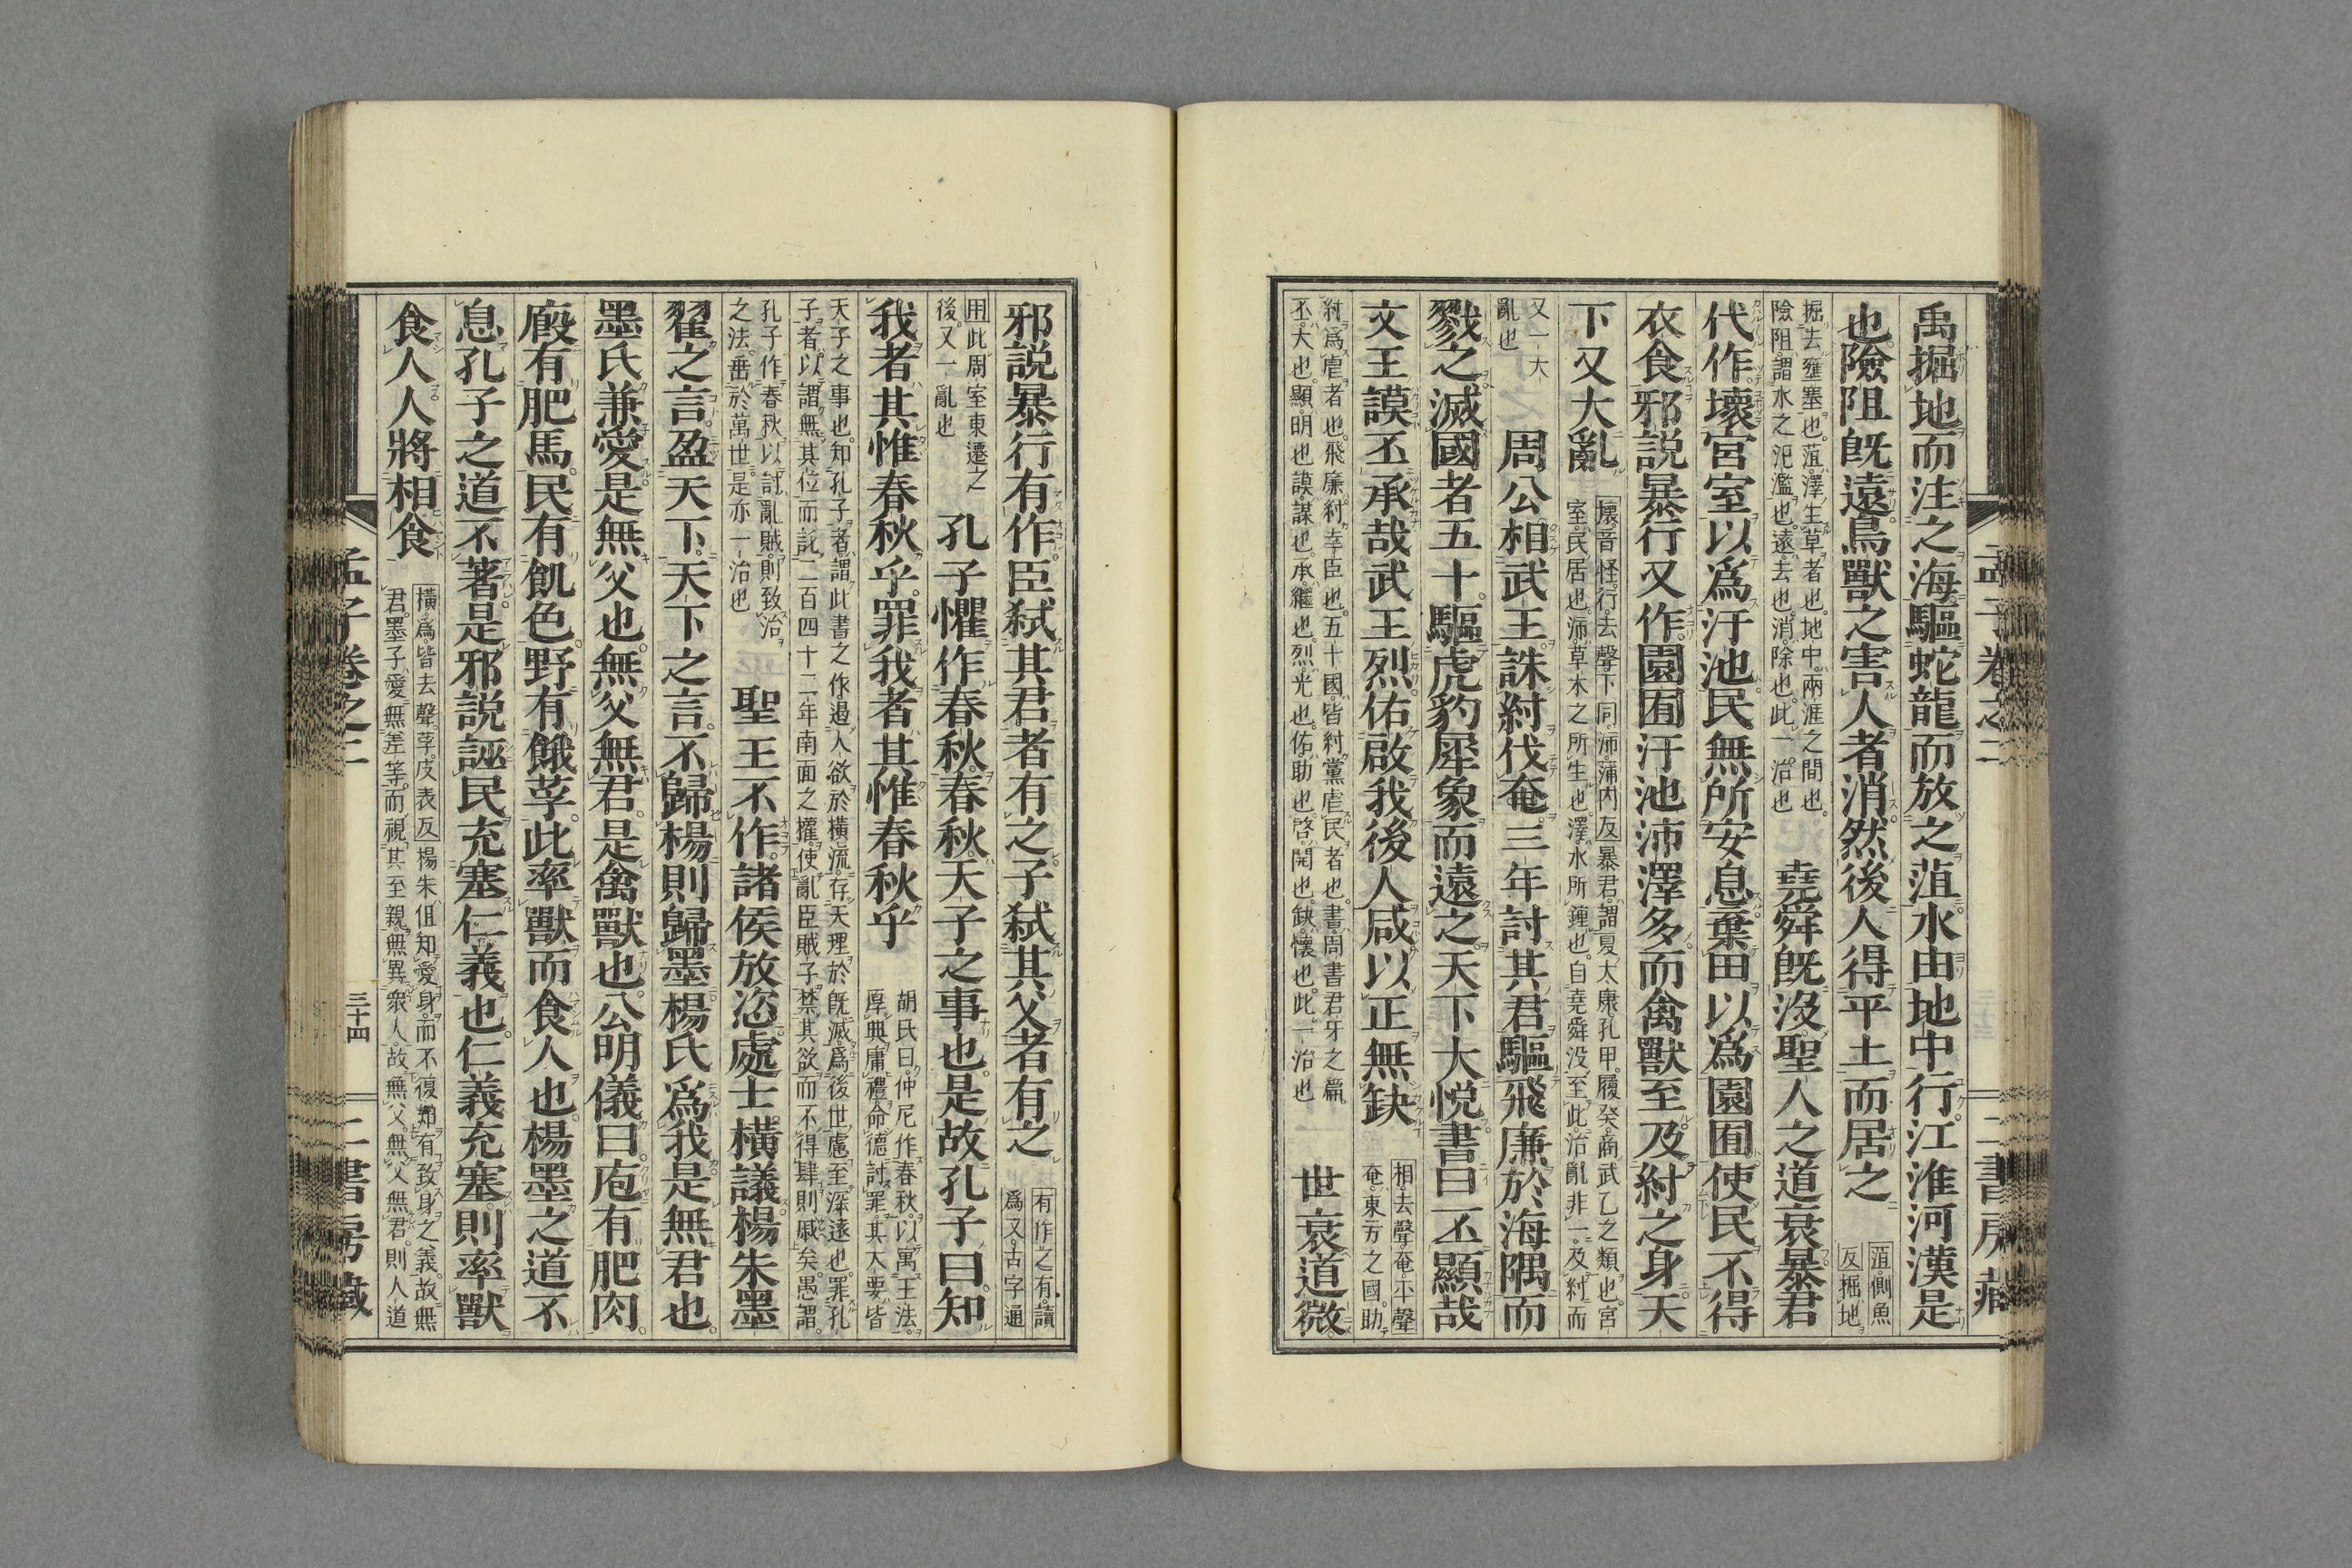 禹掘地而注之海驅蛇龍而放之菹水由地中行江淮河漢是
也險阻既遠鳥獸之害人者消然後人得平土而居之 菹側魚
反掘地
掘去壅塞也菹澤生草者也地中兩涯之間也
險阻謂水之氾濫也遠去也消除也此一治也 堯舜既沒聖人之道衰暴君
代作壞宮室以爲汙池民無所安息棄田以爲園囿使民不得
衣食邪説暴行又作園囿汙池沛澤多而禽獸至及紂之身天
下又大亂 壞音怪行去聲下同沛蒲内反暴君謂夏太康孔甲履癸商武乙之類也宮
室民居也沛草木之所生也澤水所鍾也自堯舜没至此治亂非一及紂而
又一大
亂也 周公相武王誅紂伐奄三年討其君驅飛廉於海隅而
戮之滅國者五十驅虎豹犀象而遠之天下大悦書曰丕顯哉
文王謨丕承哉武王烈佑啟我後人咸以正無缺 相去聲奄平聲
奄東方之國助
紂爲虐者也飛廉紂幸臣也五十國皆紂黨虐民者也書周書君牙之篇
丕大也顯明也謨謀也承繼也烈光也佑助也啓開也缺壞也此一治也 世衰道微
孟子卷之二
二書房藏
邪説暴行有作臣弑其君者有之子弑其父者有之 有作之有讀
爲又古字通
用此周室東遷之
後又一亂也 孔子懼作春秋春秋天子之事也是故孔子曰知
我者其惟春秋乎罪我者其惟春秋乎 胡氏曰仲尼作春秋以寓王法
厚典庸禮命德討罪其大要皆
天子之事也知孔子者謂此書之作遏人欲於橫流存天理於既滅爲後世慮至深遠也罪孔
子者以謂無其位而託二百四十二年南面之權使亂臣賊子禁其欲而不得肆則戚矣愚謂
孔子作春秋以討亂賊則致治
之法垂於萬世是亦一治也 聖王不作諸侯放恣處士橫議楊朱墨
翟之言盈天下天下之言不歸楊則歸墨楊氏爲我是無君也
墨氏兼愛是無父也無父無君是禽獸也公明儀曰庖有肥肉
廏有肥馬民有飢色野有餓莩此率獸而食人也楊墨之道不
息孔子之道不著是邪説誣民充塞仁義也仁義充塞則率獸
食人人將相食 橫爲皆去聲莩皮表反楊朱但知愛身而不復知有致身之義故無
君墨子愛無差等而視其至親無異衆人故無父無父無君則人道
孟子卷之二
三十四
二書房藏